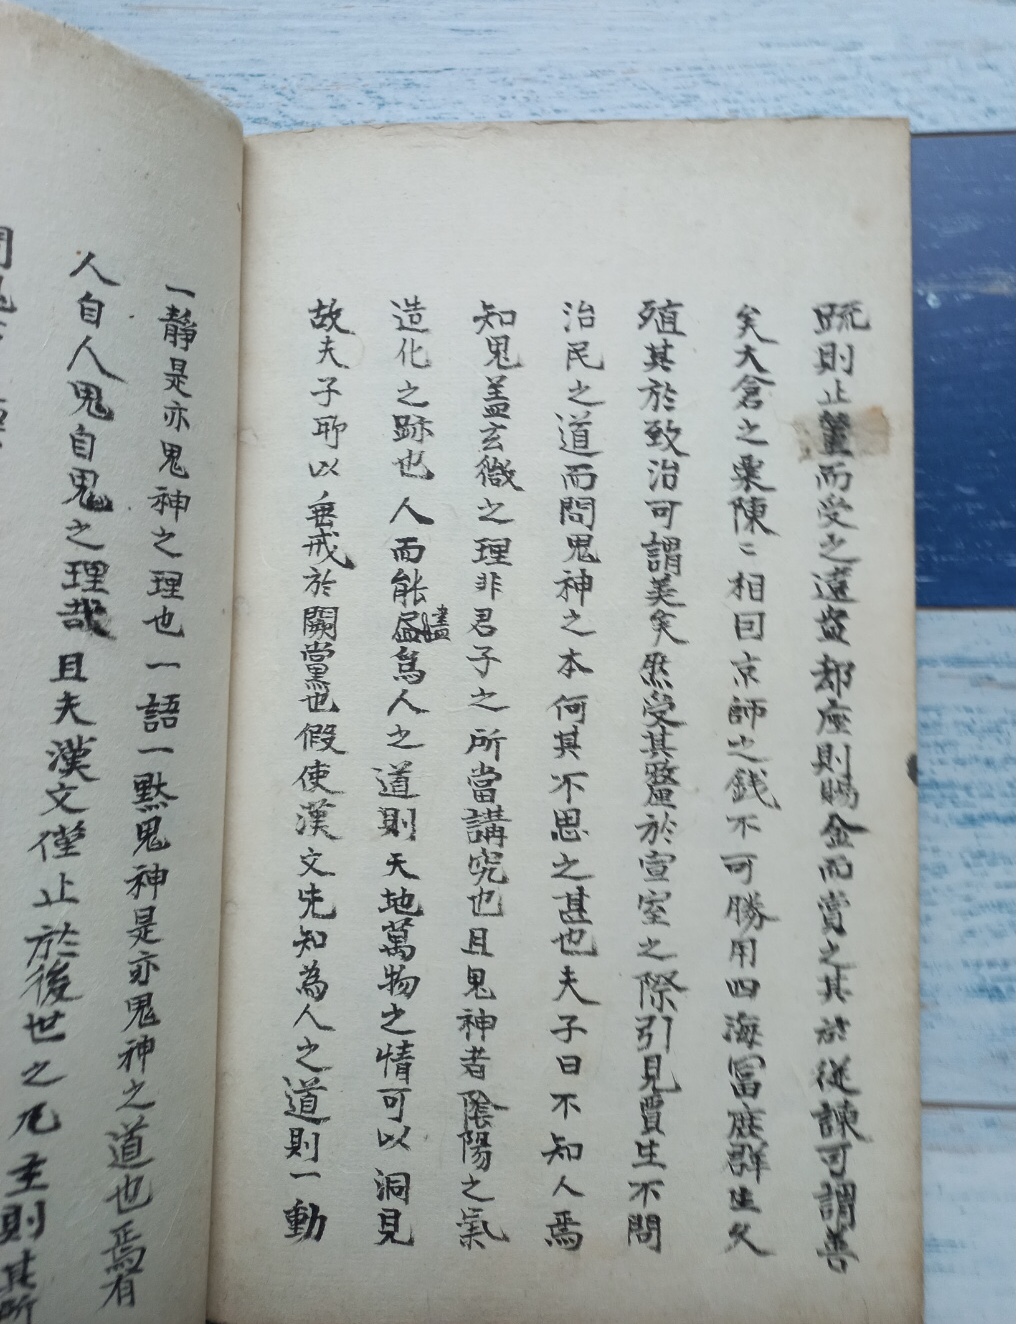 疏則止輦而受之遠盎却座則賜金而賞之其於從諫可謂善
矣大倉之粟陳〻相因京師之錢不可勝用四海富庶群生久
殖其於致治可謂美矣然受其釐於宣室之際引見賈生不問
治民之道而問鬼神之本何其不思之甚也夫子曰不知人焉
知鬼盖玄微之理非君子之所當講究也且鬼神者陰陽之氣
造化之跡也人而能盡為人之道則天地萬物之情可以洞見
故夫子所以垂戒於闕黨也假使漢文先知為人之道則一動
一靜是亦鬼神之理也一語一黙鬼神是亦鬼神之道也焉有
人自人鬼自鬼之理哉且夫漢文僅止於後世之凡主則其所